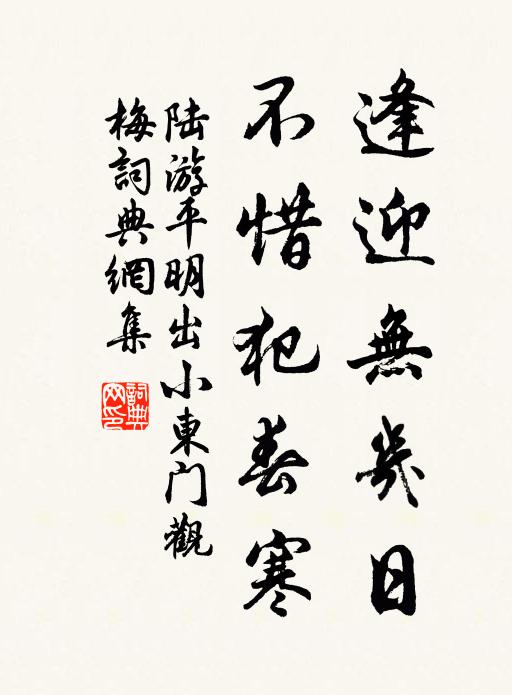 逢迎無幾日
不惜犯春寒
陆游平明出小東门觀
梅詞典網集
詞典网印